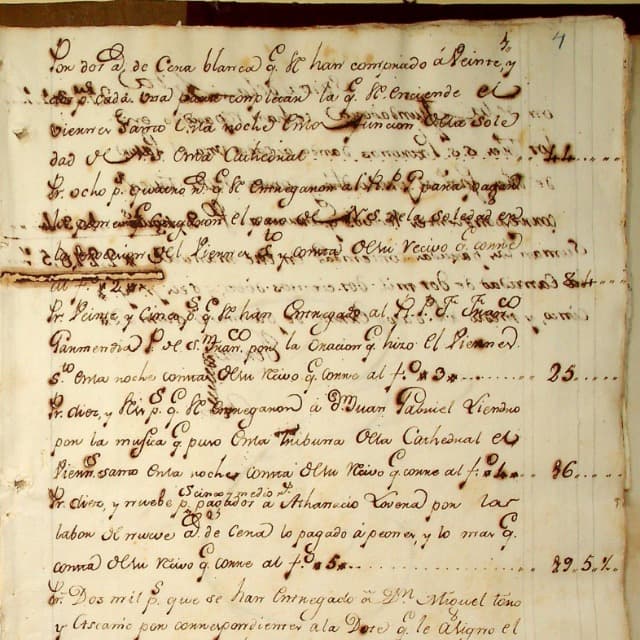 4
Por dos @ de Cera blanca q. se han comprado á Veinte, y
dos p. cada una para completar la q. se enciende el
Viernes Santo en la noche en la funcion de la Sole
dad de N.S. en la Cathedral 44
Pr. ocho p.s quatro r.s q. se entregaron al R.P. para pagar
los cargaron el paso de N.S. de la Soledad en
la procesion del Viernes S.to y consta de su recivo q. corre
al f. 2 8.4
Pr. Veinte, y Cinco p.s q. se han entregado al R.P. F. Fran.co
Garmendia de S.n Fran.co por la oracion q. hizo el Viernes
S.to en la noche consta de su recivo q. corre al f. 3 25
Pr. diez, y seis p.s q. se entregaron á d.n Juan Gabriel Liendro
por la musica q. puso en la Tribuna de la Cathedral el
Viern.s Santo en la noche consta de su recivo q. corre al f. 4 16
Pr. diez, y nueve p.s cinco y medio r.s pagados á Athanacio Lorena por la
labor de nueve @ de Cera lo pagado á peones, y lo mas q.
consta de su recivo q. corre al f. 5 19.5.½
Pr. Dos mil p.s que se han entregado á D.n Miguel
y Ascarie por correspondientes a la Dote q. le asigno el